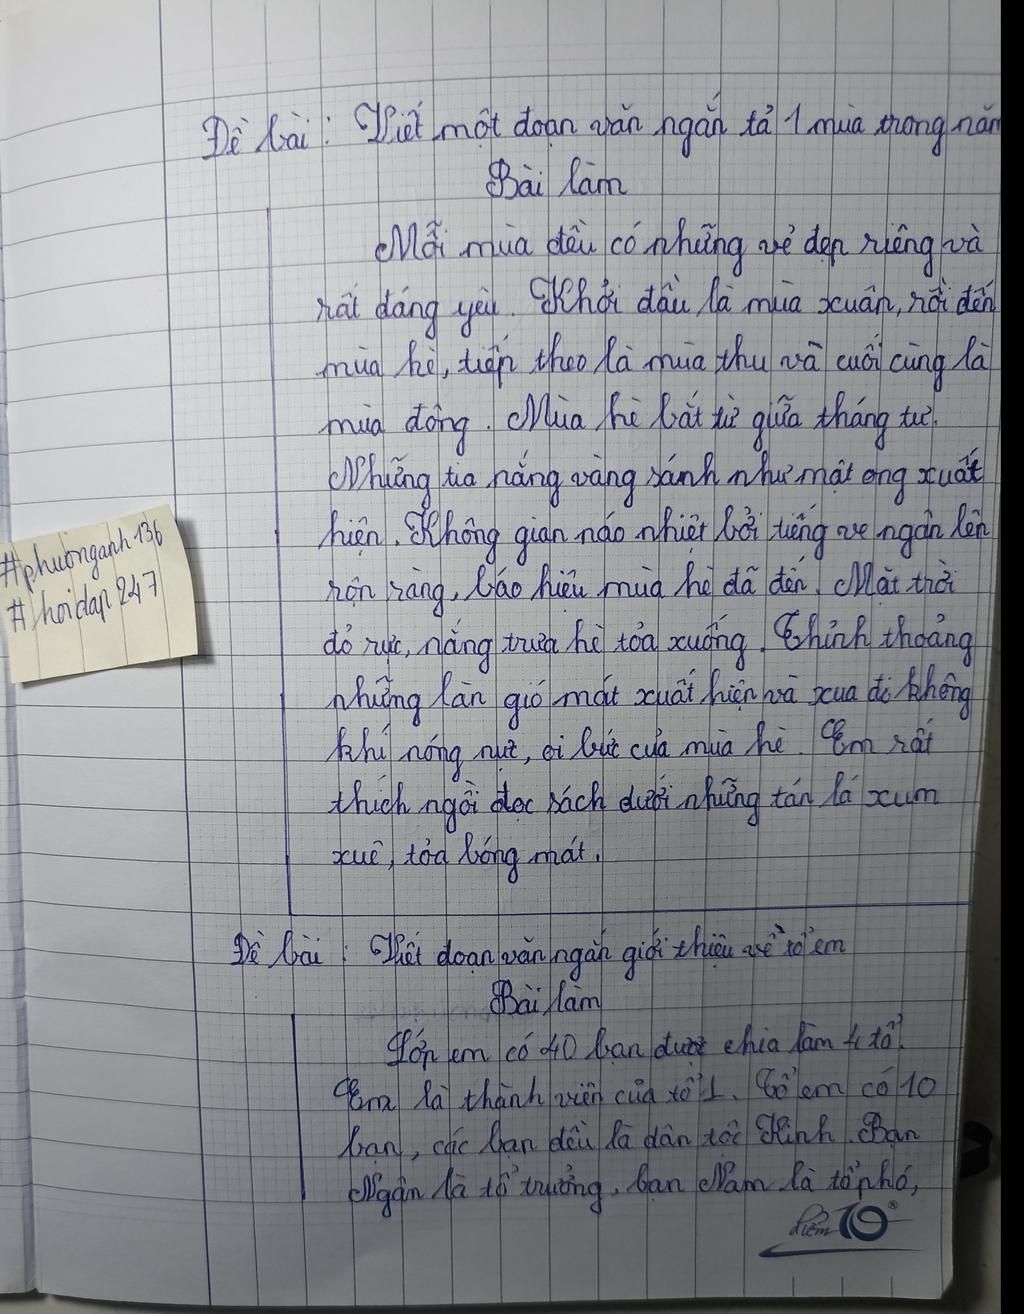 Đề bài : Viết một đoạn văn ngắn tả 1 mùa trong năm
Bài làm
Mỗi mùa đều có những vẻ đẹp riêng và
rất đáng yêu. Khởi đầu là mùa xuân, rồi đến
mùa hè, tiếp theo là mùa thu và cuối cùng là
mùa đông. Mùa hè bắt từ giữa tháng tư.
Những tia nắng vàng sánh như mật ong xuất
hiện. Không gian náo nhiệt bởi tiếng ve ngân lên
rộn ràng, báo hiệu mùa hè đã đến. Mặt trời
đỏ rực, nắng trưa hè tỏa xuống. Thỉnh thoảng
những làn gió mát xuất hiện và xua đi không
khí nóng nực, oi bức của mùa hè. Em rất
thích ngồi đọc sách dưới những tán lá xum
xuê, tỏa bóng mát.
#phuonganh136
#hoidap247
Đề bài : Viết đoạn văn ngắn giới thiệu về tổ em
Bài làm
Lớp em có 40 bạn được chia làm 4 tổ.
Em là thành viên của tổ 1. Tổ em có 10
bạn, các bạn đều là dân tộc Kinh. Bạn
Ngân là tổ trưởng, bạn Nam là tổ phó,
điểm 10®